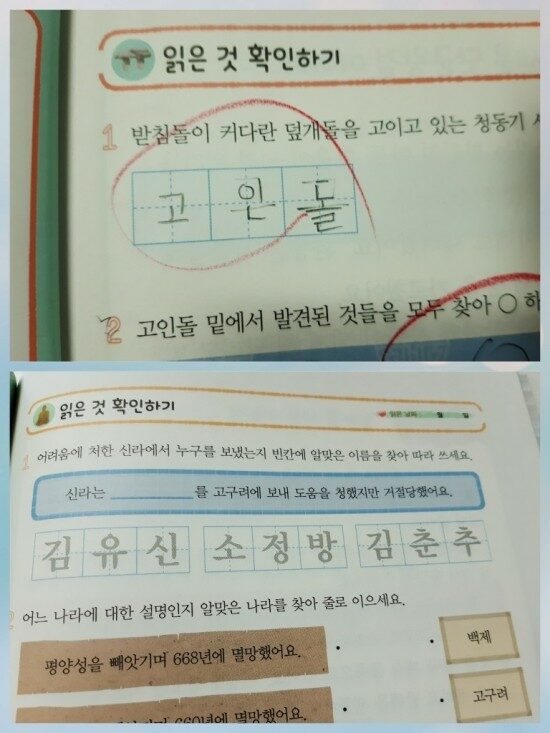 읽은 것 확인하기
1 받침돌이 커다란 덮개돌을 고이고 있는 청동기
고 인 돌
2 고인돌 밑에서 발견된 것들을 모두 찾아 ○ 하
읽은 것 확인하기
읽은 날짜 월 일
1 어려움에 처한 신라에서 누구를 보냈는지 빈칸에 알맞은 이름을 찾아 따라 쓰세요.
신라는 __________를 고구려에 보내 도움을 청했지만 거절당했어요.
김 유 신 소 정 방 김 춘 추
2 어느 나라에 대한 설명인지 알맞은 나라를 찾아 줄로 이으세요.
평양성을 빼앗기며 668년에 멸망했어요. · · 백제
660년에 멸망했어요. · · 고구려